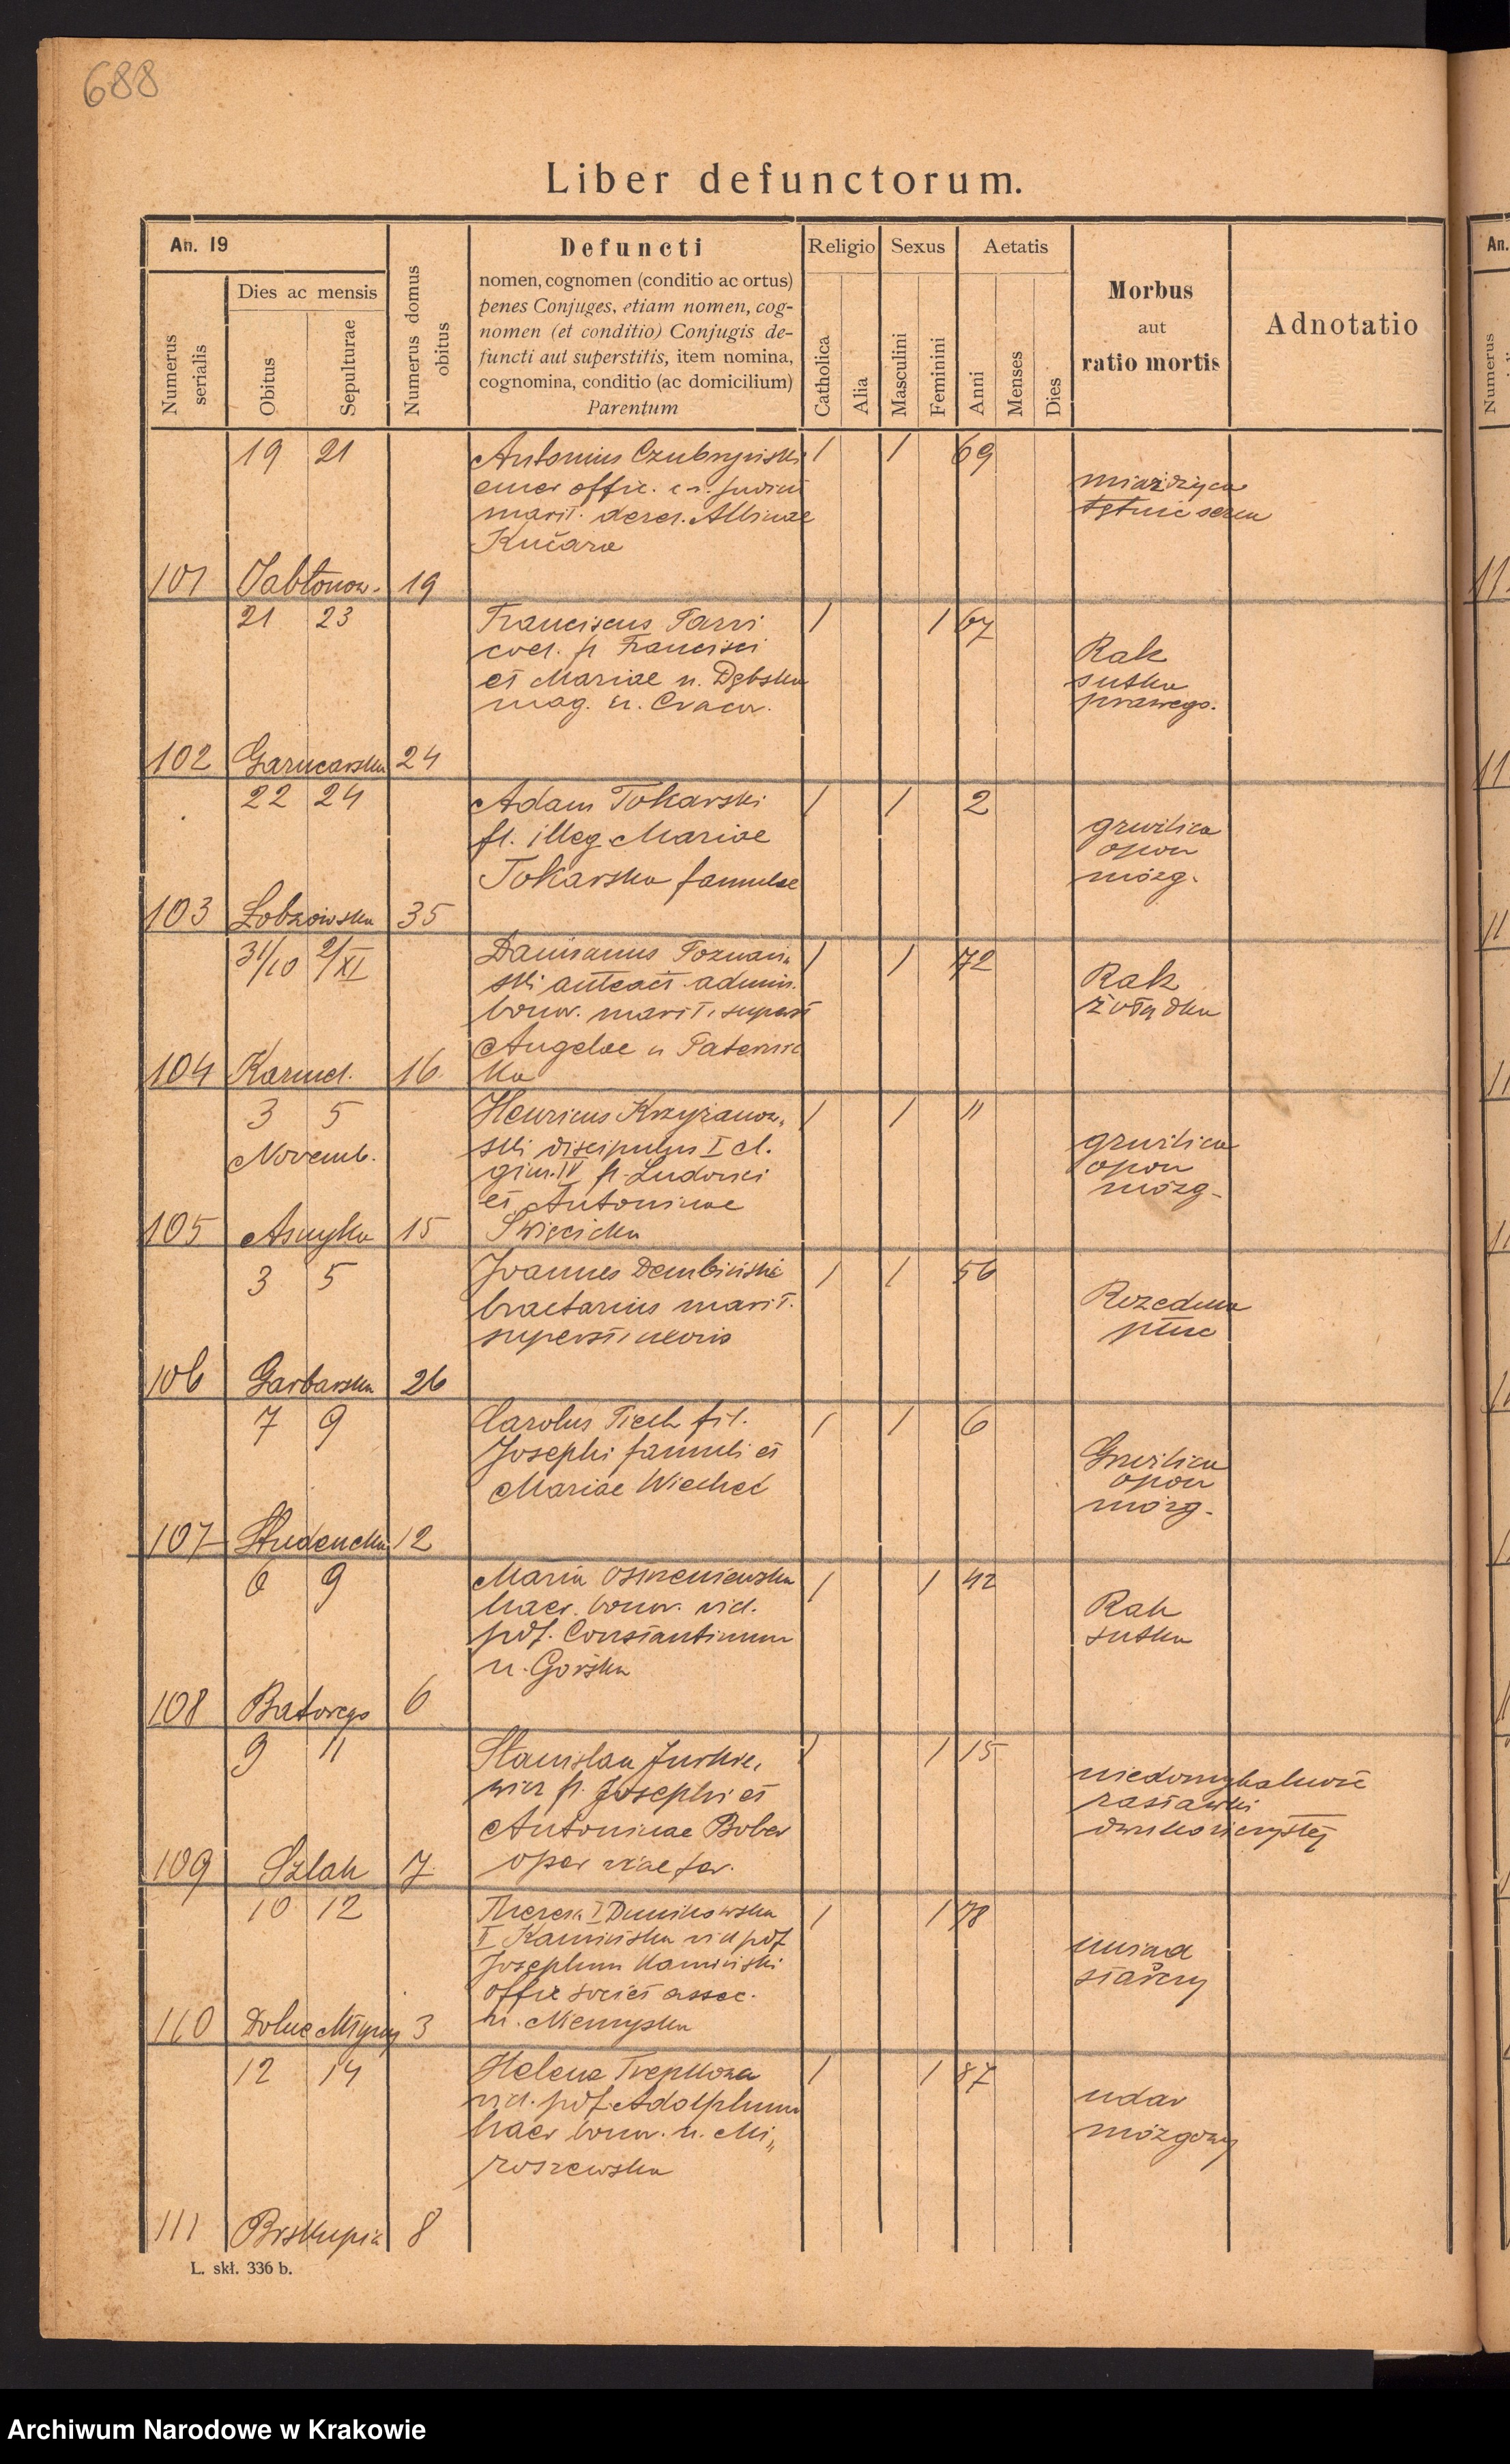 688
Liber defunctorum.
An. 19
Numerus serialis
Dies ac mensis
Obitus
Sepulturae
Numerus domus obitus
Defuncti
nomen, cognomen (conditio ac ortus)
penes Conjuges, etiam nomen, cog-
nomen (et conditio) Conjugis de-
functi aut superstitis, item nomina,
cognomina, conditio (ac domicilium)
Parentum
Religio
Catholica
Alia
Sexus
Masculini
Feminini
Aetatis
Anni
Menses
Dies
Morbus
aut
ratio mortis
Adnotatio
19 21
Antonius Czubryński
emer offic.
marit. derel. Albinae
Kučara
1 1 69
miażdżyca
tętnic serca
101 Jabłonow. 19
21 23
Franciscus
coel. fi Francisci
et Mariae n. Dębska
mag. Cracov.
1 1 67
Rak
sutka
prawego.
102 Garncarska 24
22 24
Adam Tokarski
fl. illeg. Mariae
Tokarska famulae
1 1 2
gruźlica
opon
mózg.
103 Łobzowska 35
31/10 2/XI
Damianus Poznań„
ski anteact. admin.
bonor. marit. superst
Angelae n
ka
1 1 72
Rak
żołądka
104 Karmel. 16
3 5
Novemb.
Henricus Krzyżanow„
ski discipulus I cl.
gim. IV fi. Ludovici
et Antoninae
Święcicka
1 1 11
gruźlica
opon
mózg.
105 Asnyka 15
3 5
Joannes Dembiński
bractarius marit.
superst. uxoris
1 1 56
Rozedma
płuc
106 Garbarska 26
7 9
Carolus Piech fil.
Josephi famuli et
Mariae Wiecheć
1 1 6
Gruźlica
opon
mózg.
107 Studencka 12
6 9
Maria
haer. bonor. vid.
pdf. Constantinum
n. Gorska
1 1 42
Rak
sutka
108 Batorego 6
9 11
Stanislaa Jurkie„
wicz fi. Josephi et
Antoninae Bober
oper viae fer.
1 1 15
niedomykalność
zastawki
dwukończystej
109 Szlak 7
10 12
Theresa I Dunikowska
II Kamińska vid pdf
Josephum Kamiński
offic societ assec.
n.
1 1 78
uwiąd
starczy
110 Dolne Młyny 3
12 14
Helena Trepkowa
vid. pdf. Adolphum
haer bonor. n. Mi„
roszewska
1 1 87
udar
mózgowy
111 Biskupia 8
L. skł. 336 b.
Archiwum Narodowe w Krakowie